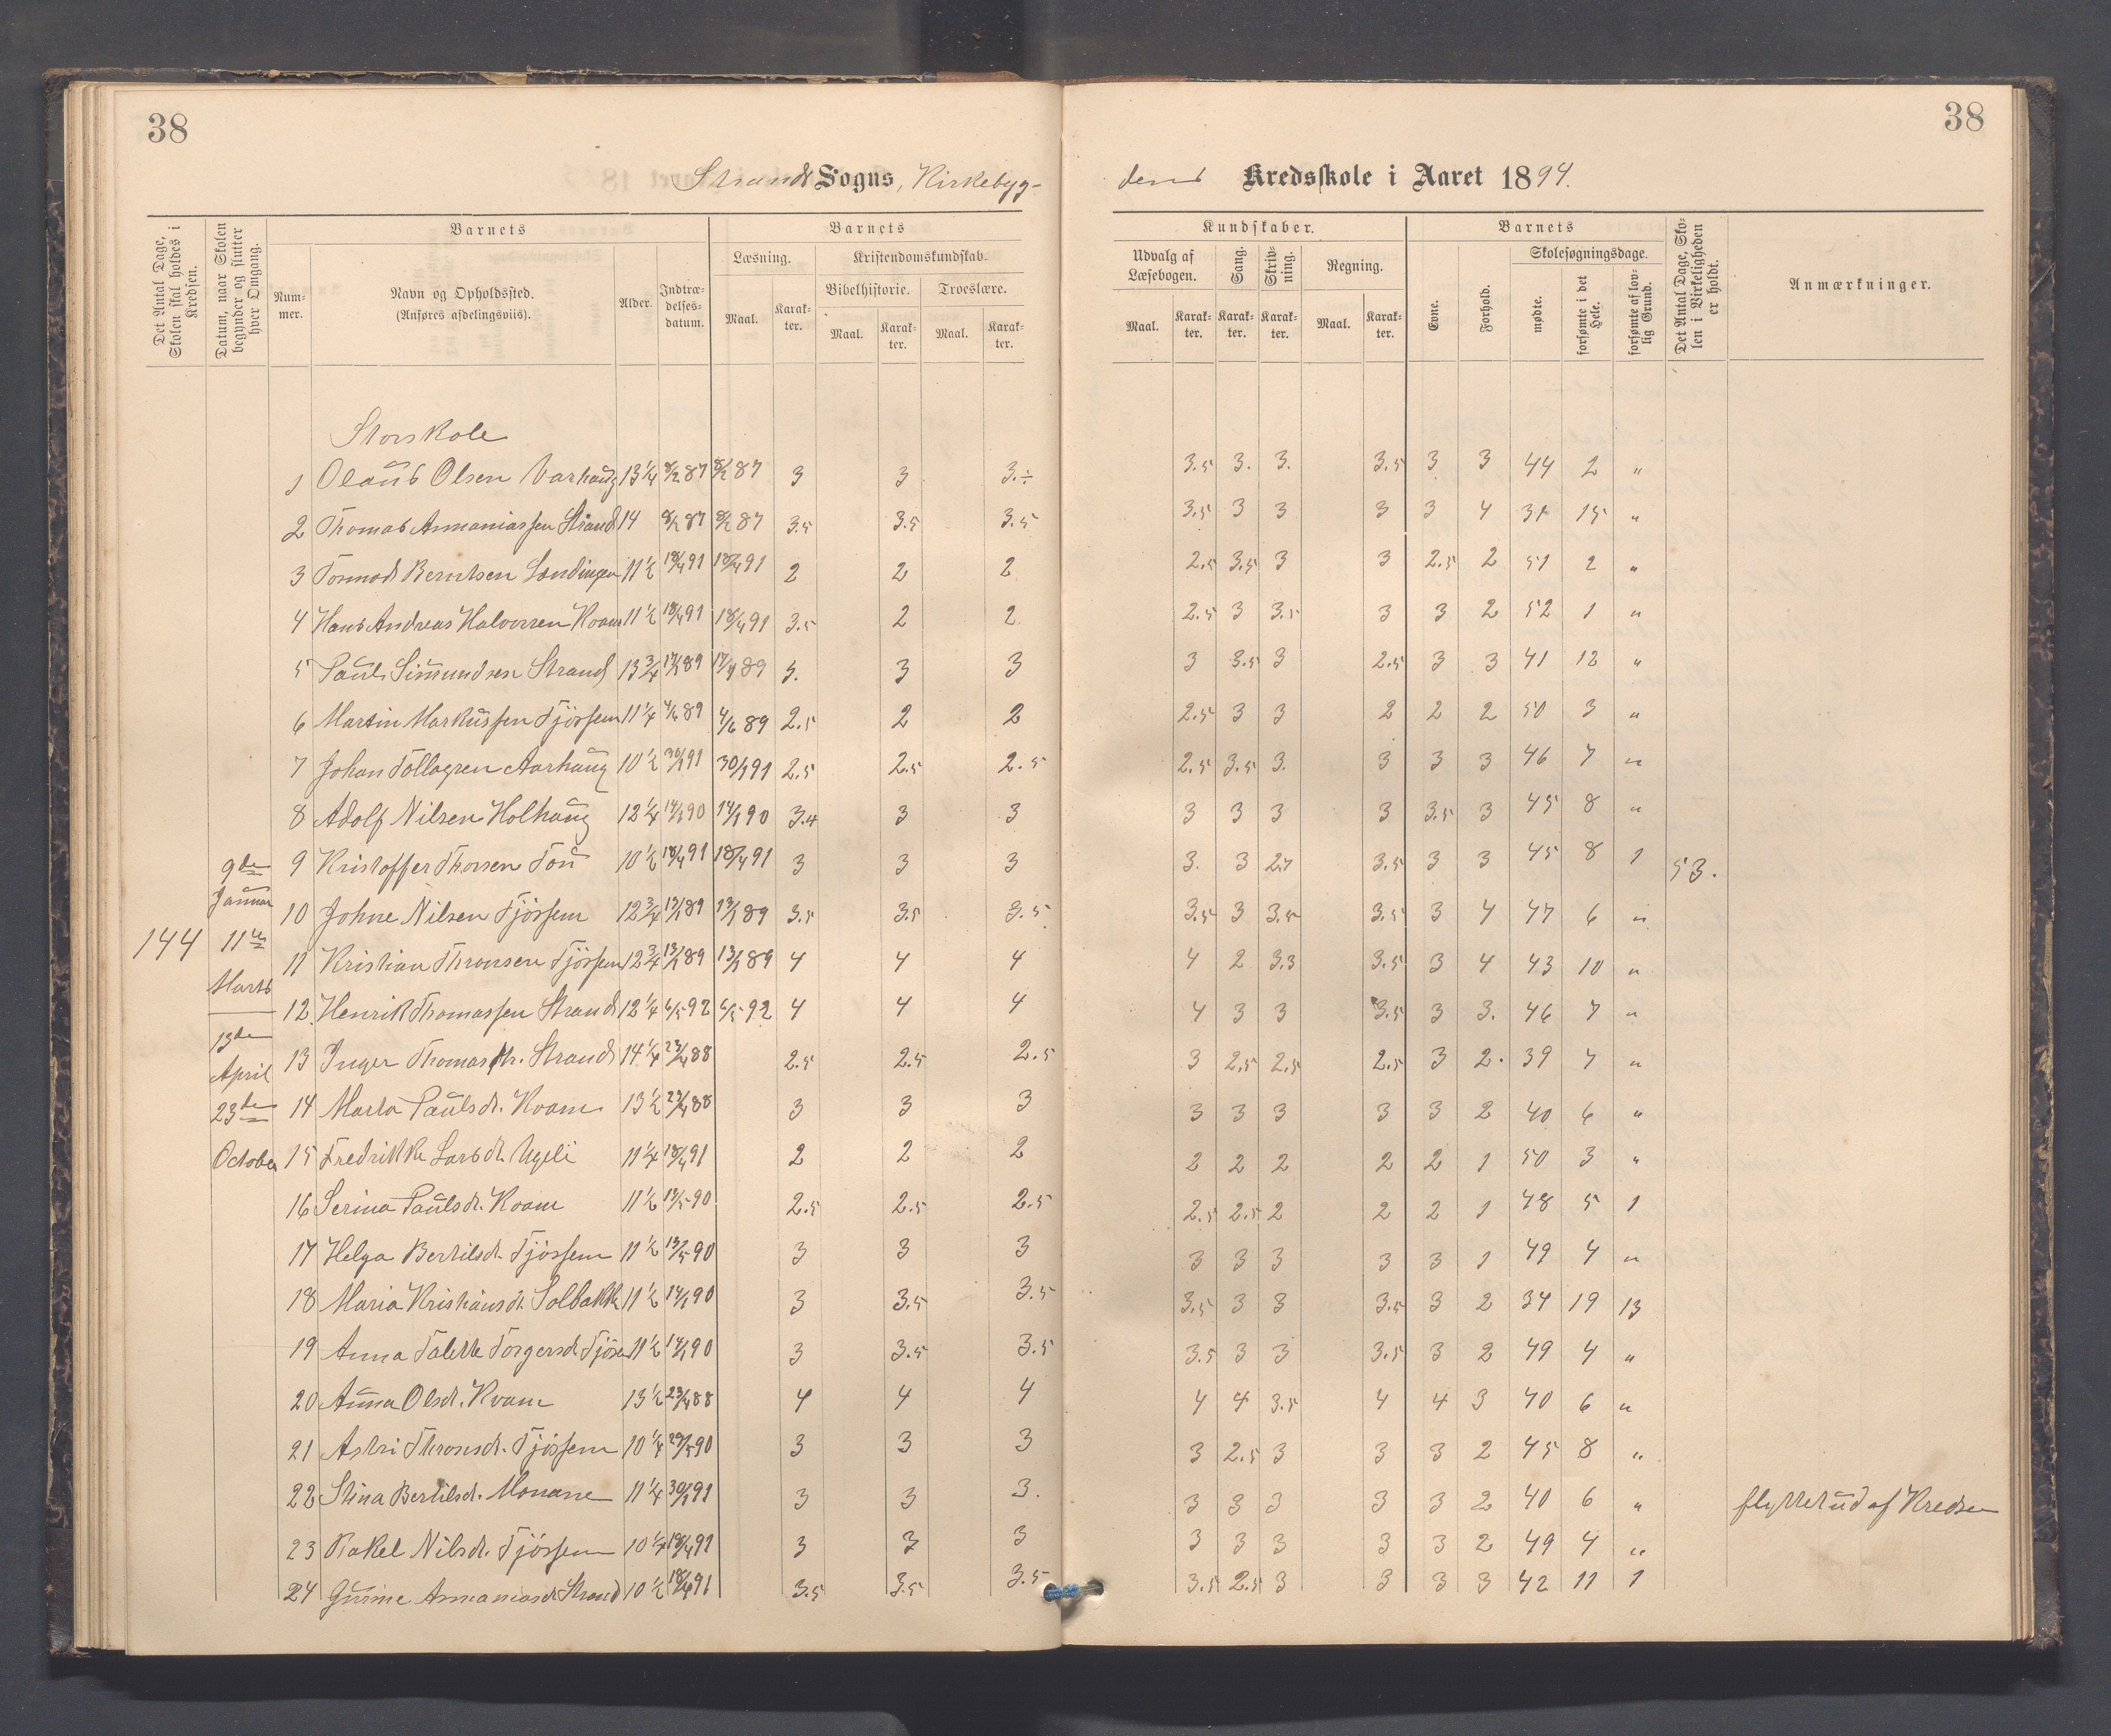 38
38
Strands Sogns, Kirkebyg-
dens Kredsskole i Aaret 1894.
Det Antal Dage, Skolen skal holdes i Kredsen.
Datum, naar Skolen begynder og slutter hver Omgang.
Barnets
Num-mer.
Navn og Opholdssted. (Anføres afdelingsviis).
Alder.
Indtræ-delses-datum.
Barnets
Læsning.
Maal.
Karak-ter.
Kristendomskundskab.
Bibelhistorie.
Maal.
Karak-ter.
Troeslære.
Maal.
Karak-ter.
Kundskaber.
Udvalg af Læsebogen.
Maal.
Karak-ter.
Sang.
Karak-ter.
Skriv-ning.
Karak-ter.
Regning.
Maal.
Karak-ter.
Barnets
Evne.
Forhold.
Skolesøgningsdage.
mødte.
forsømte i det Hele.
forsømte af lov-lig Grund.
Det Antal Dage, Sko-len i Virkeligheden er holdt.
Anmærkninger.
Storskole
1 Olaus Olsen Varhaug 13 1/4 8/2 87 8/2 87 3 3 3.÷ 3.5 3. 3. 3.5 3 3 44 2 "
2 Thomas Annaniassen Strand 14 8/2 87 8/2 87 3.5 3.5 3.5 3.5 3 3 3 3 4 31 15 "
3 Tormod Berntsen 11 1/2 18/4 91 18/4 91 2 2 2 2.5 3.5 3 3 2.5 2 51 2 "
4 Hans Andreas Halvorsen Kvam 11 1/2 18/4 91 18/4 91 3.5 2 2 2.5 3 3.5 3 3 2 52 1 "
5 Paul Simundsen Strand 13 3/4 89 89 3. 3 3 3 3.5 3 2.5 3 3 41 12 "
6 Martin Markussen Tjössem 11 1/4 4/6 89 4/6 89 2.5 2 2 2.5 3 3 2 2 2 50 3 "
7 Johan Tollagsen Aarhaug 10 1/2 30/1 91 30/1 91 2.5 2.5 2.5 2.5 3.5 3. 3 3 3 46 7 "
8 Adolf Nilsen Holhaug 12 1/4 14/1 90 14/1 90 3.4 3 3 3 3 3 3 3.5 3 45 8 "
9de 9 Kristoffer Thorsen Tou 10 1/2 18/4 91 18/4 91 3 3 3 3. 3 2.7 3.5 3 3 45 8 1 53.
Januar 10 Johne Nilsen Tjössem 12 3/4 13/1 89 13/1 89 3.5 3.5 3.5 3.5 3 3.5 3.5 3 4 47 6 "
144 11te 11 Kristian Thronsen Tjössem 12 3/4 13/1 89 13/1 89 4 4 4 4 2 3.3 3.5 3 4 43 10 "
Marts 12 Henrik Thomassen Strand 12 1/4 6/5 92 6/5 92 4 4 4 4 3 3 3.5 3 3. 46 7 "
13de
April 13 Inger Thomasdtr. Strand 14 1/4 23/4 88 2.5 2.5 2.5 3 2.5 2.5 2.5 3 2. 39 7 "
23de 14 Marta Paulsdt. Kvam 13 1/2 23/4 88 3 3 3 3 3 3 3 3 2 40 6 "
October 15 Fredrikke Larsdt. 11 1/4 18/4 91 2 2 2 2 2 2 2 2 1 50 3 "
16 Serina Paulsdt. Kvam 11 1/2 13/5 90 2.5 2.5 2.5 2.5 2.5 2 2 2 1 48 5 1
17 Helga Bertilsdt. Tjössem 11 1/2 13/5 90 3 3 3 3 3 3 3 3 1 49 4 "
18 Maria Kristiansdt. Solbakk 11 1/2 14/1 90 3 3.5 3.5 3.5 3 3 3.5 3 2 34 19 13
19 Anna Talette Torgersdt. 11 1/2 14/1 90 3 3.5 3.5 3.5 3 3 3.5 3 2 49 4 "
20 Anna Olsdt. Kvam 13 1/2 23/4 88 4 4 4 4 4 3.5 4 4 3 40 6 "
21 Astri Thronsdt. Tjössem 10 1/4 29/5 90 3 3 3 3 2.5 3 3 3 2 45 8 "
22 Stina Bertilsdt. Monane 11 1/4 30/1 91 3 3 3. 3 3 3 3 3 2 40 6 " flyttet ud af Kredsen
23 Rakel Nilsdt. Tjössem 10 1/4 18/4 91 3 3 3 3 3 3 3 3 2 49 4 "
24 Gurine Annaniasdt. Strand 10 1/2 18/4 91 3.5 3.5 3.5 3.5 2.5 3 3 3 3 42 11 1